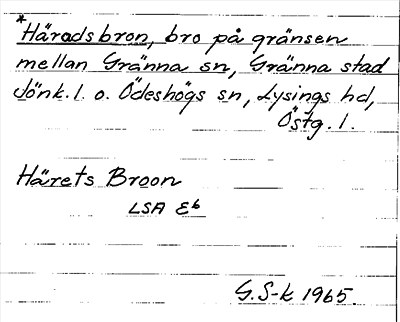 *Häradsbron, bro på gränsen
mellan Gränna sn, Gränna stad
Jönk. l. o. Ödeshögs sn, Lysings hd,
Östg. l.
Härets Broon
LSA E6
G. S-k 1965.